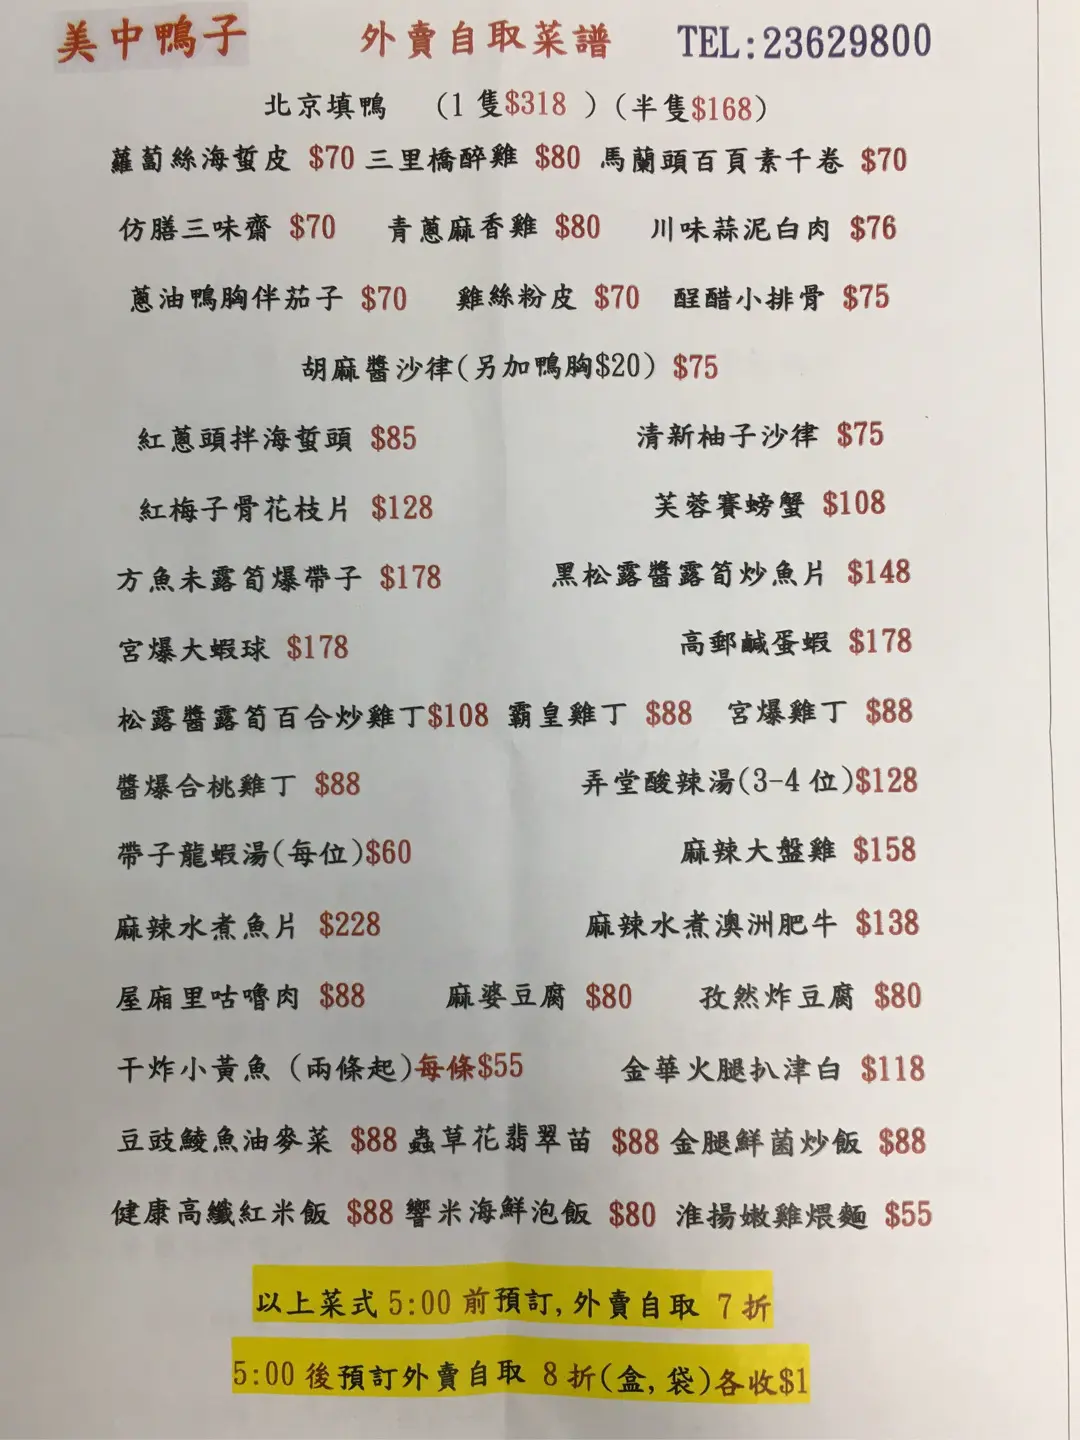 美中鴨子 外賣自取菜譜 TEL:23629800
北京填鴨 (1隻$318 ) (半隻$168)
蘿蔔絲海蜇皮 $70 三里橋醉雞 $80 馬蘭頭百頁素千卷 $70
仿膳三味齋 $70 青蔥麻香雞 $80 川味蒜泥白肉 $76
蔥油鴨胸伴茄子 $70 雞絲粉皮 $70 酲醋小排骨 $75
胡麻醬沙律(另加鴨胸$20) $75
紅蔥頭拌海蜇頭 $85 清新柚子沙律 $75
紅梅子骨花枝片 $128 芙蓉賽螃蟹 $108
方魚未露筍爆帶子 $178 黑松露醬露筍炒魚片 $148
宮爆大蝦球 $178 高郵鹹蛋蝦 $178
松露醬露筍百合炒雞丁$108 霸皇雞丁 $88 宮爆雞丁 $88
醬爆合桃雞丁 $88 弄堂酸辣湯(3-4位)$128
帶子龍蝦湯(每位)$60 麻辣大盤雞 $158
麻辣水煮魚片 $228 麻辣水煮澳洲肥牛 $138
屋廂里咕嚕肉 $88 麻婆豆腐 $80 孜然炸豆腐 $80
干炸小黃魚 (兩條起)每條$55 金華火腿扒津白 $118
豆豉鯪魚油麥菜 $88 蟲草花翡翠苗 $88 金腿鮮菌炒飯 $88
健康高纖紅米飯 $88 響米海鮮泡飯 $80 淮揚嫩雞煨麵 $55
以上菜式5:00前預訂,外賣自取 7折
5:00後預訂外賣自取 8折(盒,袋)各收$1